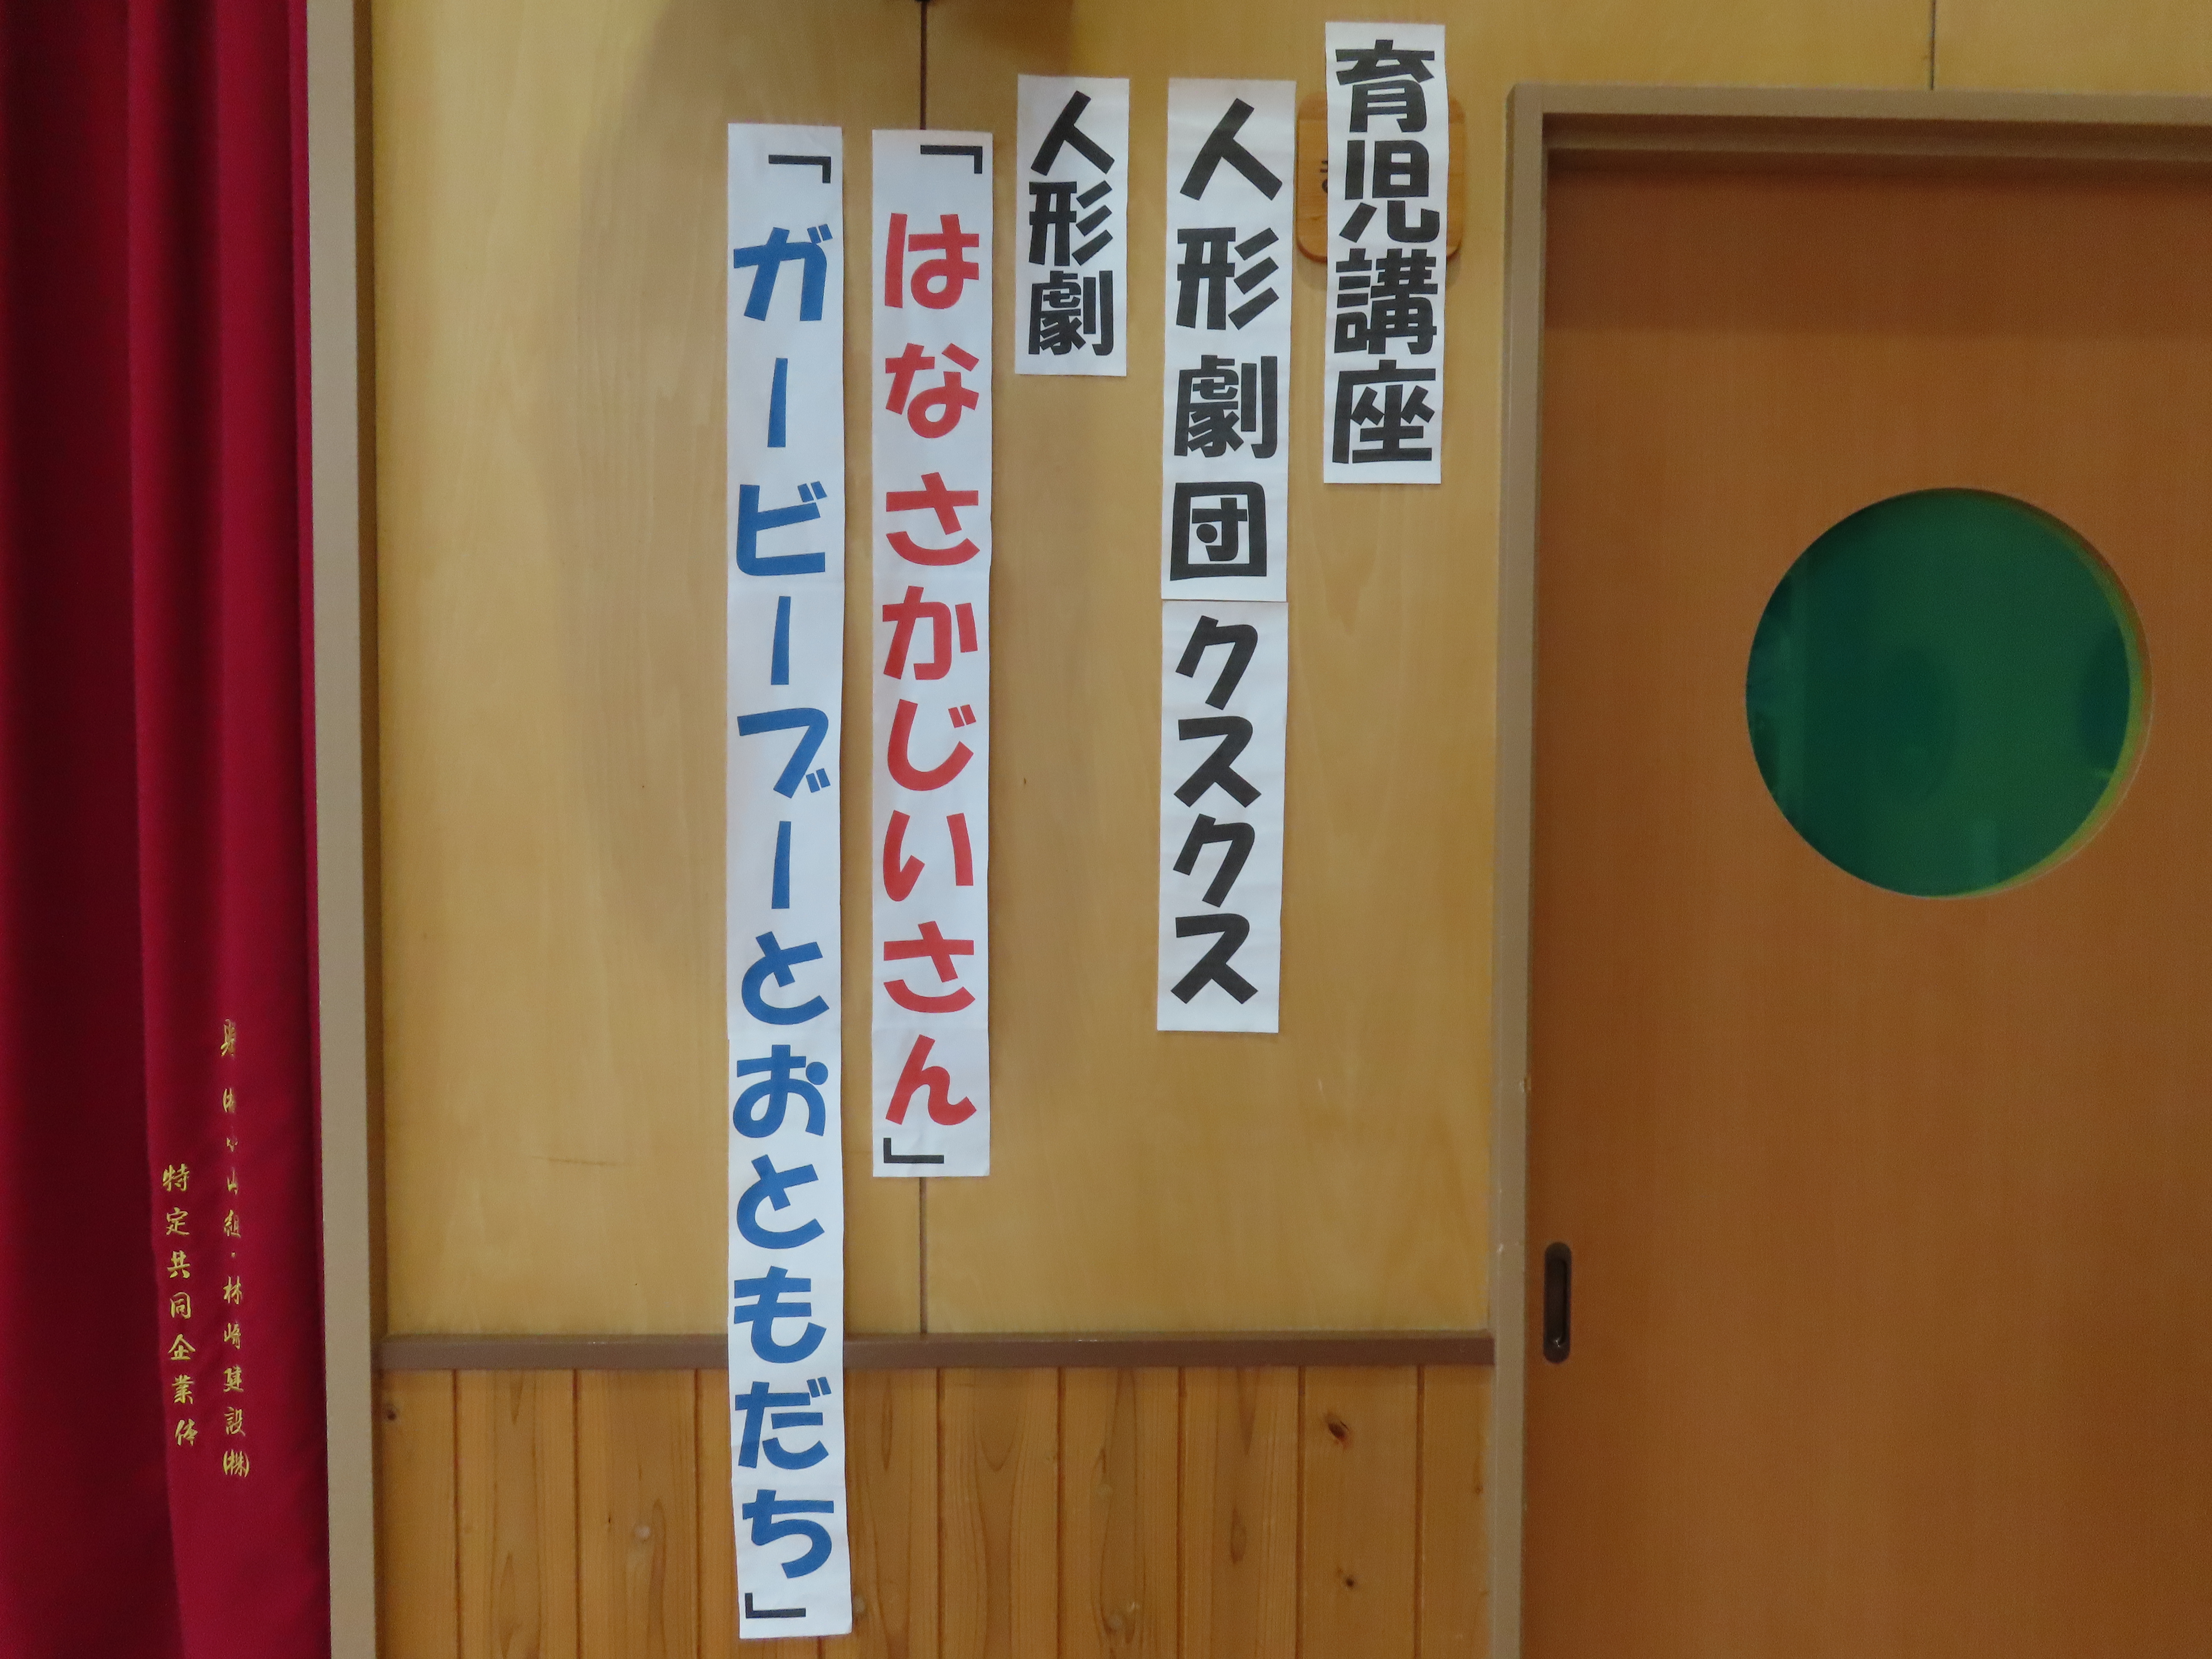 育児講座
人形劇団クスクス
人形劇
「はなさかじいさん」
「ガービーブーとおともだち」
組・林﨑建設㈱
特定共同企業体